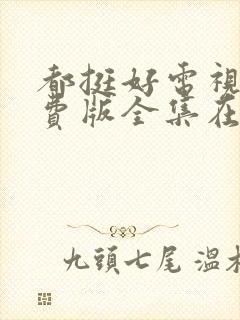 都挺好電視
費版全集在
九頭七尾 溫木